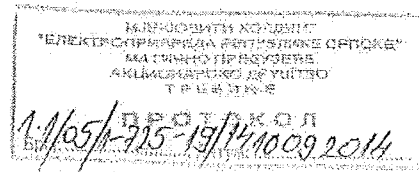 МЈЕШОВИТИ ХОЛДИНГ
"ЕЛЕКТРОПРИВРЕДА РЕПУБЛИКЕ СРПСКЕ"
МАТИЧНО ПРЕДУЗЕЋЕ
АКЦИОНАРСКО ДРУШТВО
ТРЕБИЊЕ
ПРОТОКОЛ
1.1/05/1-725-19/14 10 09 2014
Бр.